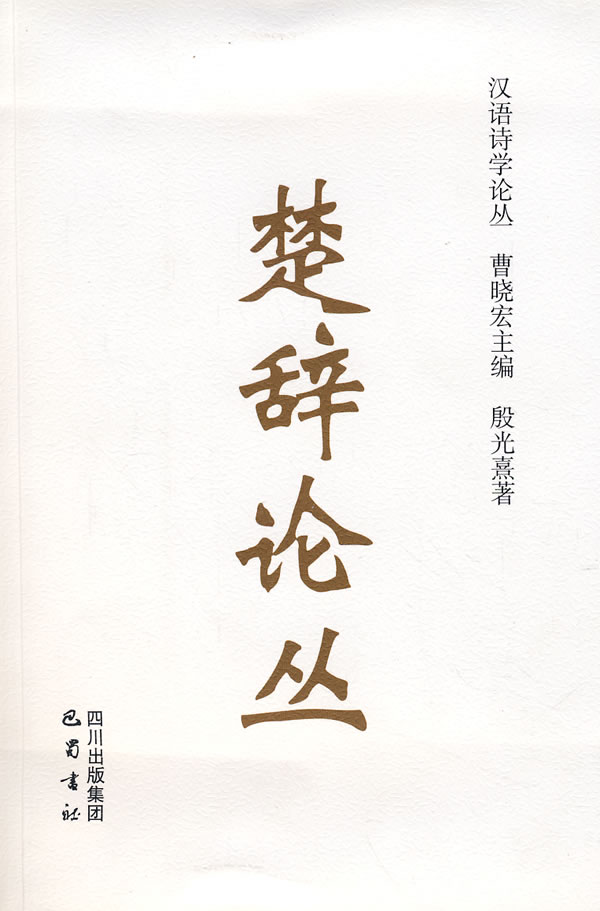 汉语诗学论丛 曹晓宏主编 殷光熹著
楚辞论丛
四川出版集团
巴蜀书社